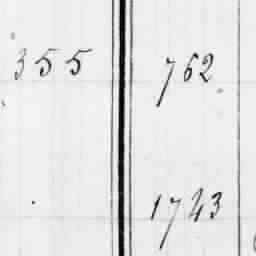 355 762
1743